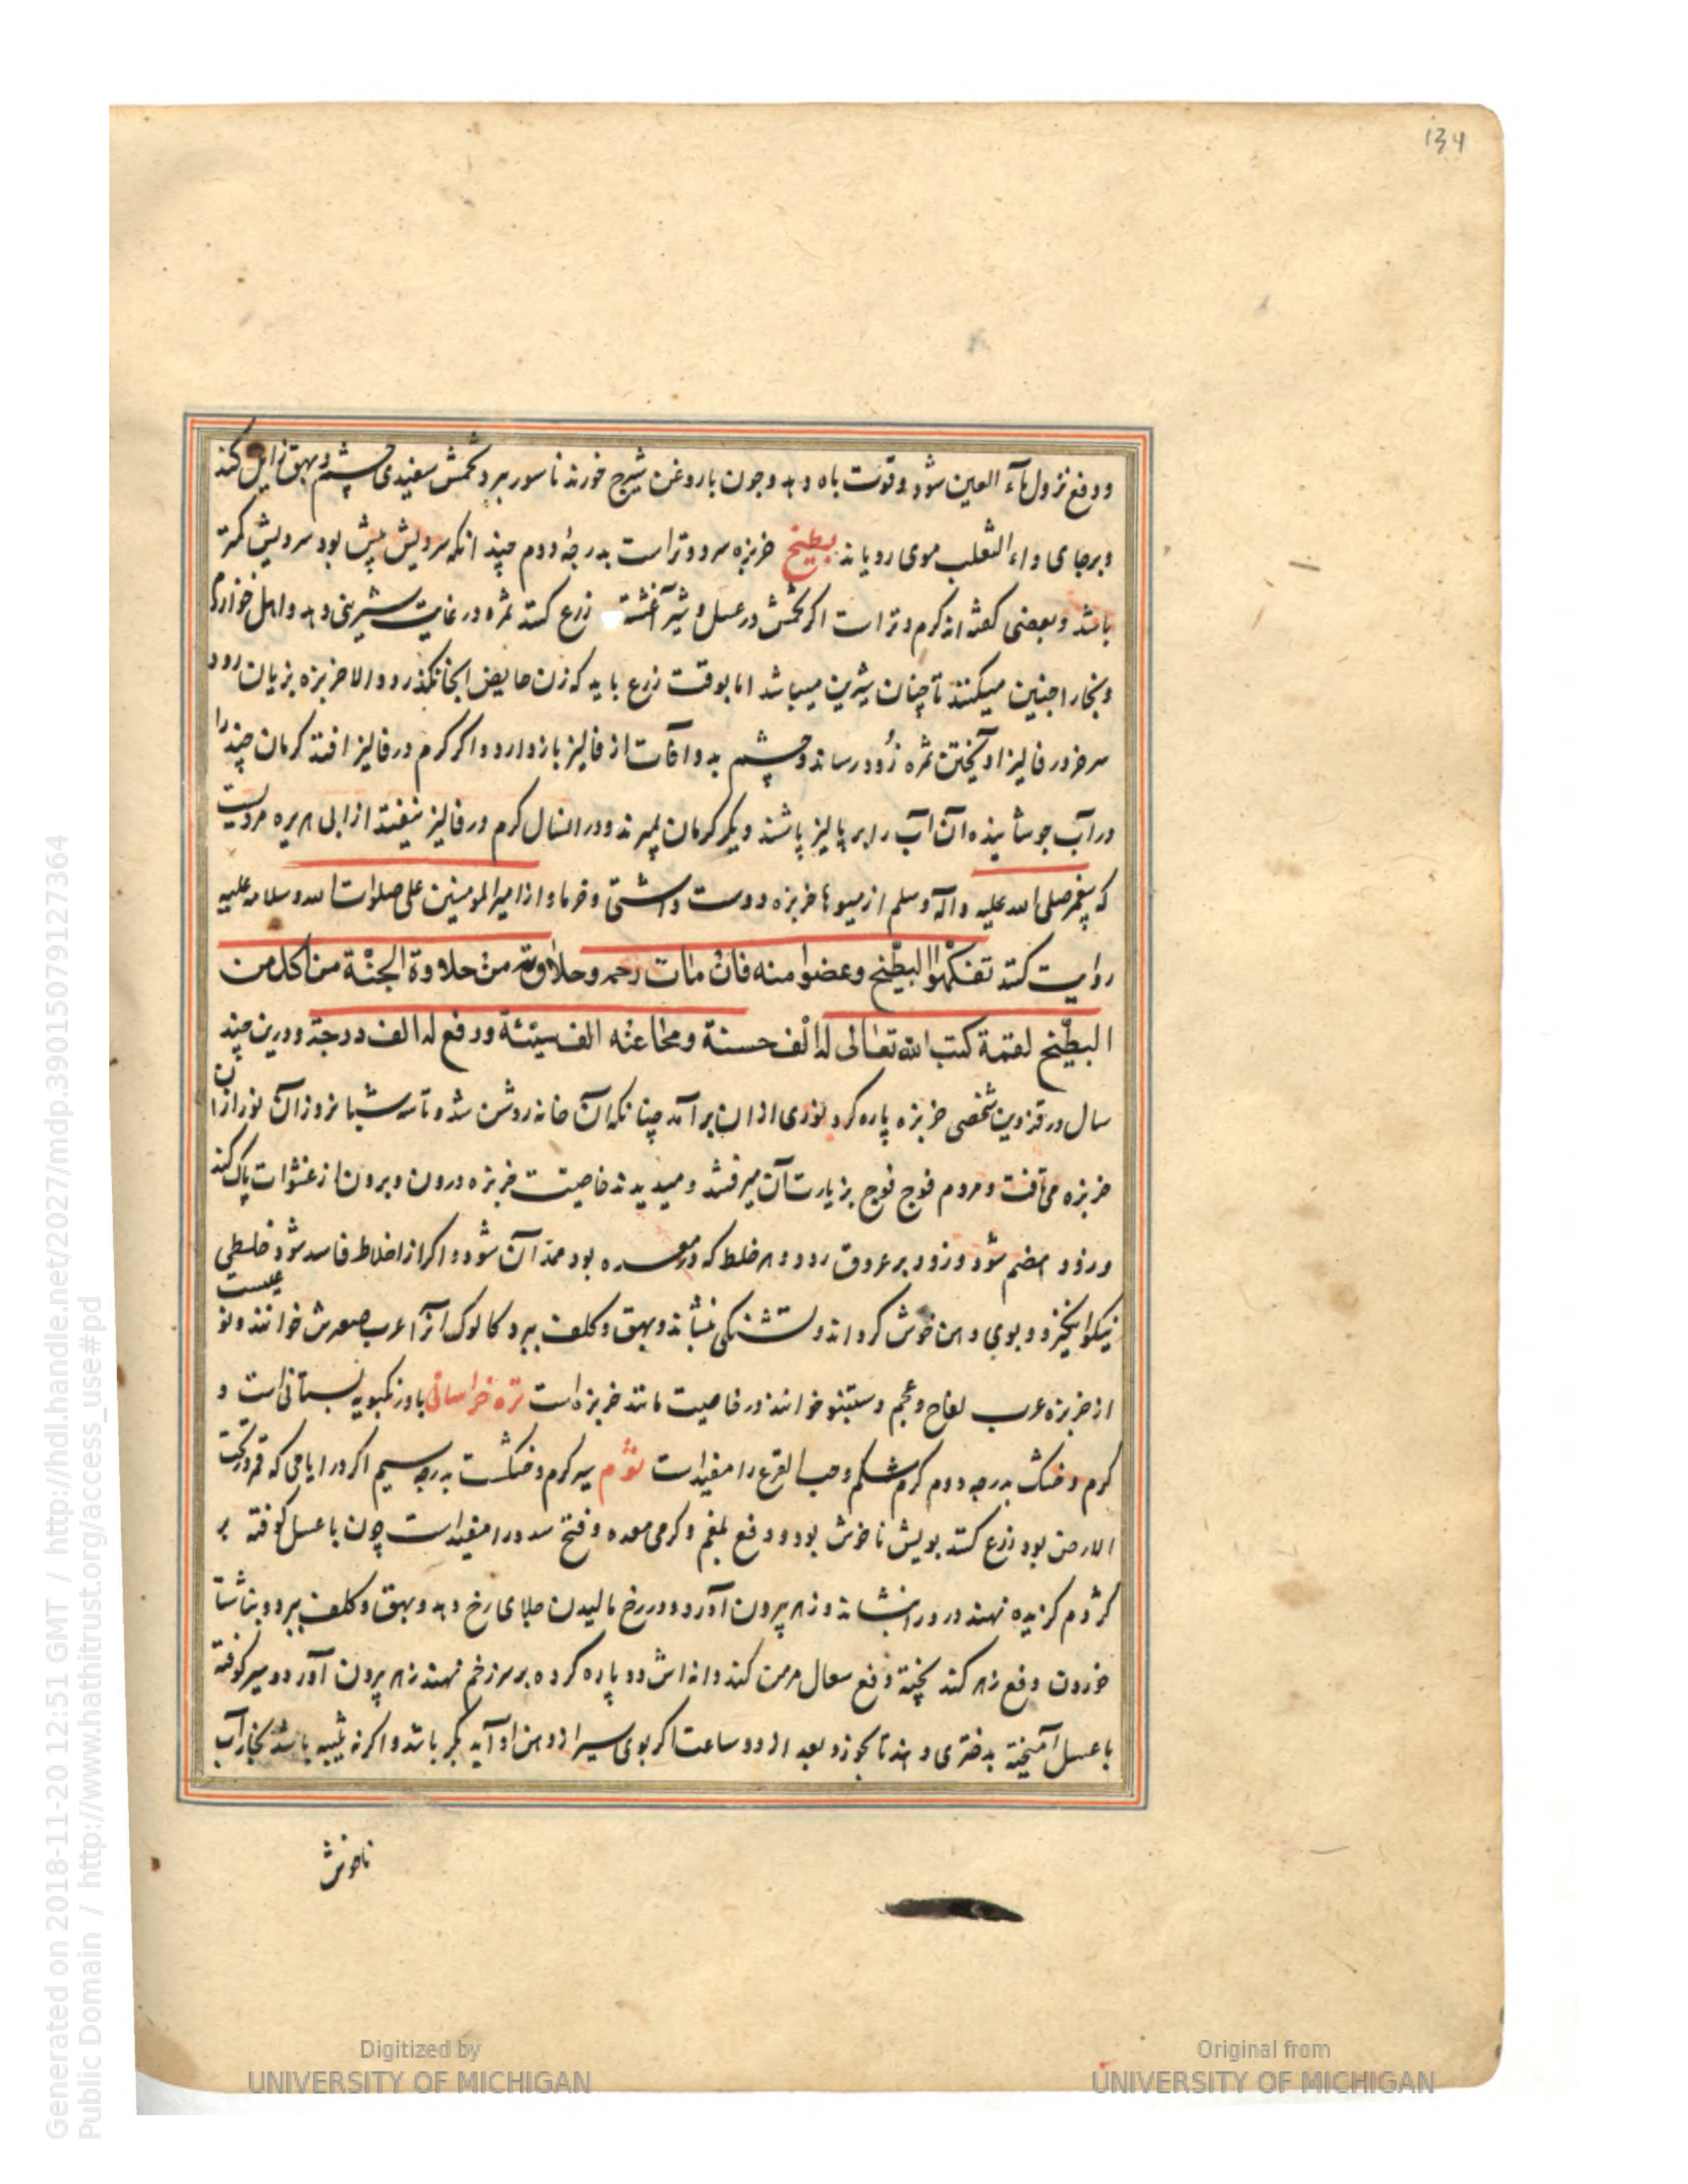 134
ودفع نزول مآء العین شود و قوت باه دهد وچون با روغن شیرج خورند ناسور ببرد تخمش سفیدی چشم وبهق زایل کند
وبرجای داء الثعلب موی رویاند بطیخ خربزه سرد وتر است بدرجهٔ دوم چند انکه سردیش بیش بود سردیش کمتر
باشد وبعضی کفته اند کرم وتر است اکر تخمش در عسل و شیر آغشته زرع کنند ثمره در غایت شیرینی دهد واهل خوارزم
وبخارا چنین میکنند تا چنان شیرین میباشد اما بوقت زرع باید که زن حایض انجا نکذرد والا خربزه بزیان رود
سر خر در فالیز اویختن ثمره زود رساند وچشم بد وآفات از فالیز باز دارد واکر کرم در فالیز افتد کرمان چند را
در آب جوشانیده آن آب را بر پالیز پاشند دیکر کرمان بمیرند ودر انسال کرم در فالیز نیفتد از ابی هریره مرویست
که پیغمبر صلی الله علیه وآله وسلم از میوها خربزه دوست داشتی وخرما واز امیر المومنین علی صلوات الله وسلامه علیه
روایت کنند تفکهوا البطیخ وعضوا منه فان ماءه رحمه وحلاوته من حلاوة الجنة من اکل من
البطیخ لقمة کتب الله تعالی له الف حسنة ومحا عنه الف سیئة ورفع له الف درجة ودرین چند
سال در قزوین شخصی خربزه پاره کرد نوری از ان برآمد چنانکه آن خانه روشن شد و تا سه شبانروز آن نور از ان
خربزه می تافت ومردم فوج فوج بزیارت آن میرفتند ومیدیدند خاصیت خربزه درون وبرون از غشوات پاک کند
وزود هضم شود وزود بر عروق رود وهر خلط که در معده بود ممد آن شود واکر از اخلاط فاسد شود خلطی
نیکو انکیزد وبوی دهن خوش کرداند وتشنکی بنشاند وبهق وکلف ببرد کالوک آنرا عرب صعرش خوانند ونوعیست
از خربزه عرب لفاح وعجم دستنبو خوانند در خاصیت مانند خربزه است تره خراسانی بادرنکبویه بستانی است و
کرم وخشک بدرجه دوم کرم شکم وحب القرع را مفیدست ثوم سیر کرم وخشکست بدرجه سیم اکر در ایامی که قمر در تحت
الارض بود زرع کنند بویش ناخوش نبود ودفع بلغم وکرمی معده وفتح سدد را مفیدست چون با عسل کوفته بر
کژدم کزیده نهند درد را بنشاند وزهر بیرون آورد ودر رخ مالیدن جلای رخ دهد وبهق وکلف ببرد وبناشتا
خوردن دفع زهر کند پخته دفع سعال مزمن کند ودانه اش دو پاره کرده بر سر زخم نهند زهر بیرون آورد وسیر کوفته
با عسل آمیخته بدختری دهند تا بخورد بعد از دو ساعت اکر بوی سیر از دهن او آید بکر باشد واکر نه ثیبه باشد بخار آب
ناخوش
Generated on 2018-11-20 12:51 GMT / http://hdl.handle.net/2027/mdp.39015079127364
Public Domain / http://www.hathitrust.org/access_use#pd
Digitized by
UNIVERSITY OF MICHIGAN
Original from
UNIVERSITY OF MICHIGAN